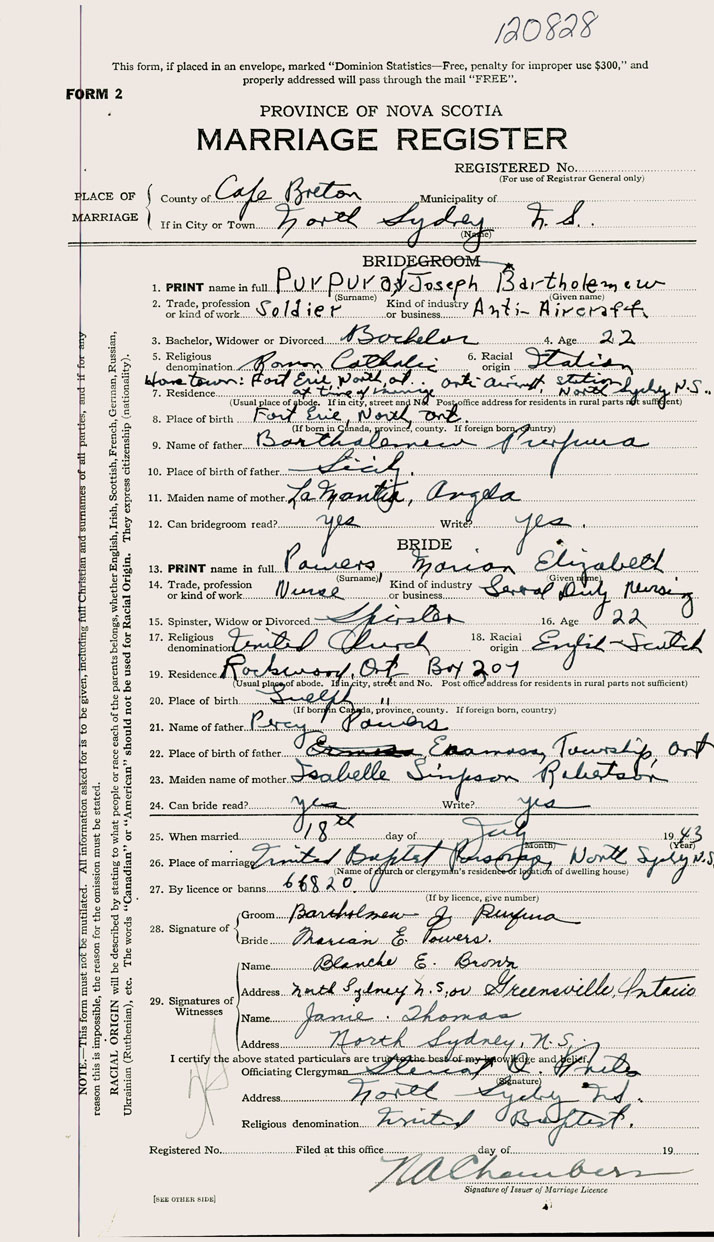 120828
This form, if placed in an envelope, marked "Dominion Statistics—Free, penalty for improper use $300," and
properly addressed will pass through the mail "FREE".
FORM 2
PROVINCE OF NOVA SCOTIA
MARRIAGE REGISTER
REGISTERED No.
(For use of Registrar General only)
PLACE OF MARRIAGE
County of Cape Breton Municipality of
If in City or Town North Sydney N.S.
(Name)
BRIDEGROOM
1. PRINT name in full Purpura, Joseph Bartholemew
(Surname) (Given name)
2. Trade, profession or kind of work Soldier Kind of industry or business Anti-Aircraft
3. Bachelor, Widower or Divorced Bachelor 4. Age 22
5. Religious denomination Roman Catholic 6. Racial origin Italian
Home town: Fort Erie, North, ont. anti Aircraft station
7. Residence at time of North Sydney N.S.
(Usual place of abode. If in city, street and No. Post office address for residents in rural parts not sufficient)
8. Place of birth Fort Erie, North, Ont.
(If born in Canada, province, county. If foreign born, country)
9. Name of father Bartholemew Purpura
10. Place of birth of father Sicily.
11. Maiden name of mother La Mantia, Angela
12. Can bridegroom read? yes Write? yes.
BRIDE
13. PRINT name in full Powers, Marian Elizabeth
(Surname) (Given name)
14. Trade, profession or kind of work Nurse Kind of industry or business General Duty Nursing
15. Spinster, Widow or Divorced Spinster 16. Age 22
17. Religious denomination United Church 18. Racial origin English-Scotch
19. Residence Rockwood, Ont Box 207
(Usual place of abode. If in city, street and No. Post office address for residents in rural parts not sufficient)
20. Place of birth Guelph "
(If born in Canada, province, county. If foreign born, country)
21. Name of father Percy Powers
22. Place of birth of father Eramosa, Township, Ont
23. Maiden name of mother Isabelle Simpson Robertson
24. Can bride read? yes Write? yes
25. When married 18th day of July 1943
(Month) (Year)
26. Place of marriage United Baptist Parsonage, North Sydney N.S.
(Name of church or clergyman's residence or location of dwelling house)
27. By licence or banns 66820
(If by licence, give number)
28. Signature of
Groom Bartholmew J. Purpura
Bride Marian E. Powers.
29. Signatures of Witnesses
Name Blanche E. Brown
Address North Sydney N.S. or Greensville, Ontario
Name Janie Thomas
Address North Sydney, N.S.
I certify the above stated particulars are true to the best of my knowledge and belief.
Officiating Clergyman
(Signature)
Address North Sydney N.S.
Religious denomination United Baptist.
Registered No. Filed at this office day of 19
N A Chambers
Signature of Issuer of Marriage Licence
[SEE OTHER SIDE]
NOTE.—This form must not be mutilated. All information asked for is to be given, including full Christian and surnames of all parties, and if for any
reason this is impossible, the reason for the omission must be stated.
RACIAL ORIGIN will be described by stating to what people or race each of the parents belongs, whether English, Irish, Scottish, French, German, Russian,
Ukrainian (Ruthenian), etc. The words "Canadian" or "American" should not be used for Racial Origin. They express citizenship (nationality).